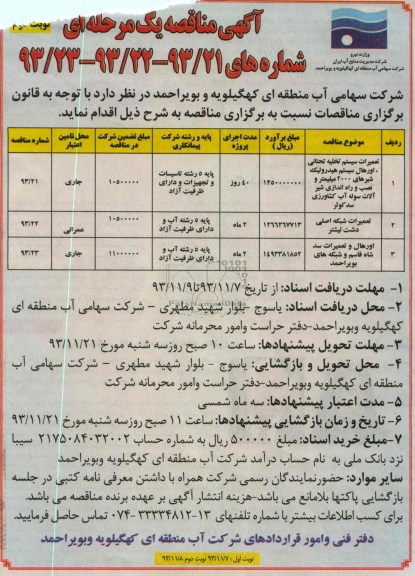 وزارت نیرو
شرکت مدیریت منابع آب ایران
شرکت سهامی آب منطقه ای کهگیلویه و بویراحمد
آگهی مناقصه یک مرحله ای
نوبت دوم
شماره های ۹۳/۲۱-۹۳/۲۲-۹۳/۲۳
شرکت سهامی آب منطقه ای کهگیلویه و بویراحمد در نظر دارد با توجه به قانون
برگزاری مناقصات نسبت به برگزاری مناقصه به شرح ذیل اقدام نماید.
ردیف | موضوع مناقصه | مبلغ برآورد (ریال) | مدت اجرای پروژه | پایه و رشته شرکت پیمانکاری | مبلغ تضمین شرکت در مناقصه | محل تامین اعتبار | شماره مناقصه
۱ | تعمیرات سیستم تخلیه تحتانی ، اورهال سیستم هیدرولیک، شیرهای ۲۰۰۰ میلیمتر و نصب و راه اندازی شیر آلات سوله آب کشاورزی سد کوثر | ۱۲۵۰۰۰۰۰۰۰ | ۴۰ روز | پایه ۵ رشته تاسیسات و تجهیزات و دارای ظرفیت آزاد | ۱۰۵۰۰۰۰۰ | جاری | ۹۳/۲۱
۲ | تعمیرات شبکه اصلی دشت لیشتر | ۱۲۶۶۲۷۷۱۳ | ۲ ماه | پایه ۵ رشته آب و دارای ظرفیت آزاد | ۱۰۵۰۰۰۰۰ | عمرانی | ۹۳/۲۲
۳ | اورهال و تعمیرات سد شاه قاسم و شبکه های بویراحمد | ۱۴۹۳۳۸۱۸۵۲ | ۲ ماه | پایه ۵ رشته آب و دارای ظرفیت آزاد | ۱۱۰۰۰۰۰۰ | جاری | ۹۳/۲۳
۱- مهلت دریافت اسناد: از تاریخ ۹۳/۱۱/۷تا۹۳/۱۱/۹
۲- محل دریافت اسناد: یاسوج -بلوار شهید مطهری - شرکت سهامی آب منطقه ای
کهگیلویه وبویراحمد-دفتر حراست وامور محرمانه شرکت
۳- مهلت تحویل پیشنهادها: ساعت ۱۰ صبح روزسه شنبه مورخ ۹۳/۱۱/۲۱
۴- محل تحویل و بازگشایی: یاسوج - بلوار شهید مطهری - شرکت سهامی آب
منطقه ای کهگیلویه وبویراحمد-دفتر حراست وامور محرمانه شرکت
۵- مدت اعتبار پیشنهادها: سه ماه شمسی
۶- تاریخ و زمان بازگشایی پیشنهادها: ساعت ۱۱ صبح روزسه شنبه مورخ ۹۳/۱۱/۲۱
۷- مبلغ خرید اسناد: مبلغ ۵۰۰۰۰۰ ریال به شماره حساب ۲۱۷۵۰۸۴۰۳۲۰۰۲ سیبا
نزد بانک ملی به نام حساب درآمد شرکت آب منطقه ای کهگیلویه وبویراحمد
سایر موارد: حضورنمایندگان رسمی شرکت همراه با داشتن معرفی نامه کتبی در جلسه
بازگشایی پاکتها بلامانع می باشد-هزینه انتشار آگهی بر عهده برنده مناقصه می باشد.
برای کسب اطلاعات بیشتر با شماره تلفنهای ۱۳-۳۳۳۳۴۸۱۲ -۰۷۴ تماس حاصل فرمایید.
دفتر فنی وامور قراردادهای شرکت آب منطقه ای کهگیلویه وبویراحمد
نوبت اول : ۹۳/۱۱/۷ نوبت دوم ۹۳/۱۱/۸